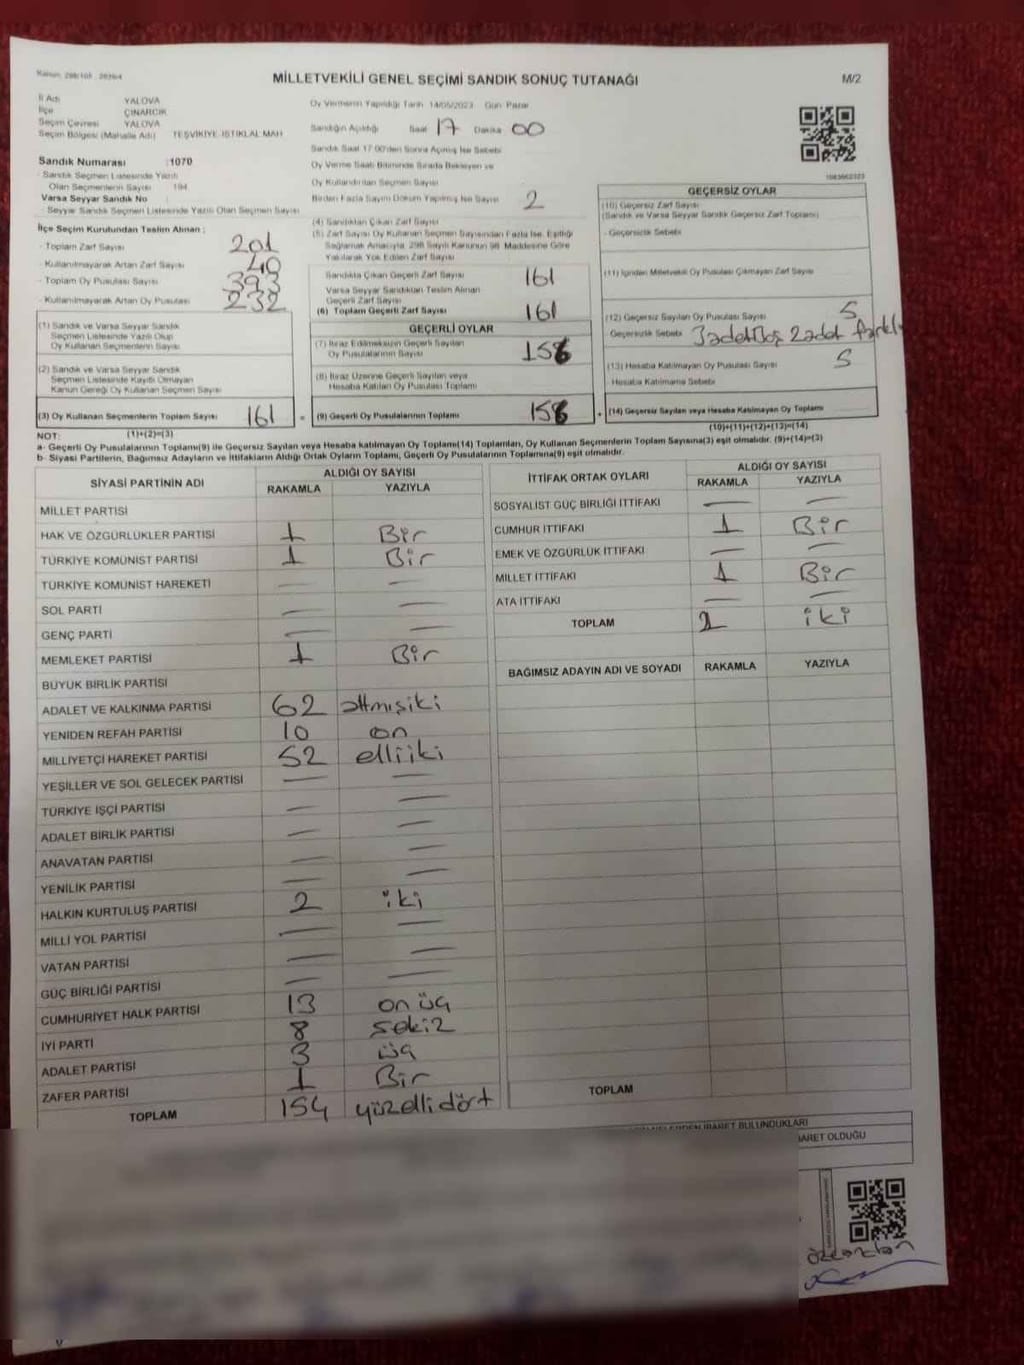 Kanun: 298/105 , 2839/4
MİLLETVEKİLİ GENEL SEÇİMİ SANDIK SONUÇ TUTANAĞI
M/2
İl Adı YALOVA
İlçe ÇINARCIK
Seçim Çevresi YALOVA
Seçim Bölgesi (Mahalle Adı) TEŞVİKİYE -İSTİKLAL MAH
Sandık Numarası :1070
- Sandık Seçmen Listesinde Yazılı
Olan Seçmenlerin Sayısı : 194
Varsa Seyyar Sandık No
- Seyyar Sandık Seçmen Listesinde Yazılı Olan Seçmen Sayısı
İlçe Seçim Kurulundan Teslim Alınan ;
- Toplam Zarf Sayısı 201
- Kullanılmayarak Artan Zarf Sayısı 40
- Toplam Oy Pusulası Sayısı 393
- Kullanılmayarak Artan Oy Pusulası 232
(1) Sandık ve Varsa Seyyar Sandık
Seçmen Listesinde Yazılı Olup
Oy Kullanan Seçmenlerin Sayısı
(2) Sandık ve Varsa Seyyar Sandık
Seçmen Listesinde Kayıtlı Olmayan
Kanun Gereği Oy Kullanan Seçmen Sayısı
(3) Oy Kullanan Seçmenlerin Toplam Sayısı 161 =
Oy Vermenin Yapıldığı Tarih 14/05/2023 Gün Pazar
Sandığın Açıldığı Saat 17 Dakika 00
Sandık Saat 17:00'den Sonra Açılmış İse Sebebi
Oy Verme Saati Bitiminde Sırada Bekleyen ve
Oy Kullandırılan Seçmen Sayısı
Birden Fazla Sayım Döküm Yapılmış İse Sayısı 2
(4) Sandıktan Çıkan Zarf Sayısı
(5) Zarf Sayısı Oy Kullanan Seçmen Sayısından Fazla İse, Eşitliği
Sağlamak Amacıyla, 298 Sayılı Kanunun 98. Maddesine Göre
Yakılarak Yok Edilen Zarf Sayısı
Sandıkta Çıkan Geçerli Zarf Sayısı 161
Varsa Seyyar Sandıktan Teslim Alınan
Geçerli Zarf Sayısı
(6) Toplam Geçerli Zarf Sayısı 161
GEÇERLİ OYLAR
(7) İtiraz Edilmeksizin Geçerli Sayılan
Oy Pusulalarının Sayısı 156
(8) İtiraz Üzerine Geçerli Sayılan veya
Hesaba Katılan Oy Pusulası Toplamı
(9) Geçerli Oy Pusulalarının Toplamı 156 +
1083602323
GEÇERSİZ OYLAR
(10) Geçersiz Zarf Sayısı
(Sandık ve Varsa Seyyar Sandık Geçersiz Zarf Toplamı)
- Geçersizlik Sebebi
(11) İçinden Milletvekili Oy Pusulası Çıkmayan Zarf Sayısı
(12) Geçersiz Sayılan Oy Pusulası Sayısı 5
Geçersizlik Sebebi 3 adet Boş 2 adet farklı
(13) Hesaba Katılmayan Oy Pusulası Sayısı 5
Hesaba Katılmama Sebebi
(14) Geçersiz Sayılan veya Hesaba Katılmayan Oy Toplamı
NOT: (1)+(2)=(3)
(10)+(11)+(12)+(13)=(14)
a- Geçerli Oy Pusulalarının Toplamı(9) ile Geçersiz Sayılan veya Hesaba katılmayan Oy Toplamı(14) Toplamları, Oy Kullanan Seçmenlerin Toplam Sayısına(3) eşit olmalıdır. (9)+(14)=(3)
b- Siyasi Partilerin, Bağımsız Adayların ve İttifakların Aldığı Ortak Oyların Toplamı, Geçerli Oy Pusulalarının Toplamına(9) eşit olmalıdır.
SİYASİ PARTİNİN ADI
ALDIĞI OY SAYISI
RAKAMLA YAZIYLA
MİLLET PARTİSİ
HAK VE ÖZGÜRLÜKLER PARTİSİ 1 Bir
TÜRKİYE KOMÜNİST PARTİSİ 1 Bir
TÜRKİYE KOMÜNİST HAREKETİ — —
SOL PARTİ — —
GENÇ PARTİ — —
MEMLEKET PARTİSİ 1 Bir
BÜYÜK BİRLİK PARTİSİ
ADALET VE KALKINMA PARTİSİ 62 altmışiki
YENİDEN REFAH PARTİSİ 10 on
MİLLİYETÇİ HAREKET PARTİSİ 52 elliiki
YEŞİLLER VE SOL GELECEK PARTİSİ — —
TÜRKİYE İŞÇİ PARTİSİ — —
ADALET BİRLİK PARTİSİ — —
ANAVATAN PARTİSİ — —
YENİLİK PARTİSİ — —
HALKIN KURTULUŞ PARTİSİ 2 iki
MİLLİ YOL PARTİSİ — —
VATAN PARTİSİ — —
GÜÇ BİRLİĞİ PARTİSİ — —
CUMHURİYET HALK PARTİSİ 13 on üç
İYİ PARTİ 8 sekiz
ADALET PARTİSİ 3 üç
ZAFER PARTİSİ 1 Bir
TOPLAM 154 yüzellidört
İTTİFAK ORTAK OYLARI
ALDIĞI OY SAYISI
RAKAMLA YAZIYLA
SOSYALİST GÜÇ BİRLİĞİ İTTİFAKI — —
CUMHUR İTTİFAKI 1 Bir
EMEK VE ÖZGÜRLÜK İTTİFAKI — —
MİLLET İTTİFAKI 1 Bir
ATA İTTİFAKI — —
TOPLAM 2 iki
BAĞIMSIZ ADAYIN ADI VE SOYADI RAKAMLA YAZIYLA
TOPLAM
İBARET BULUNDUKLARI
İBARET OLDUĞU